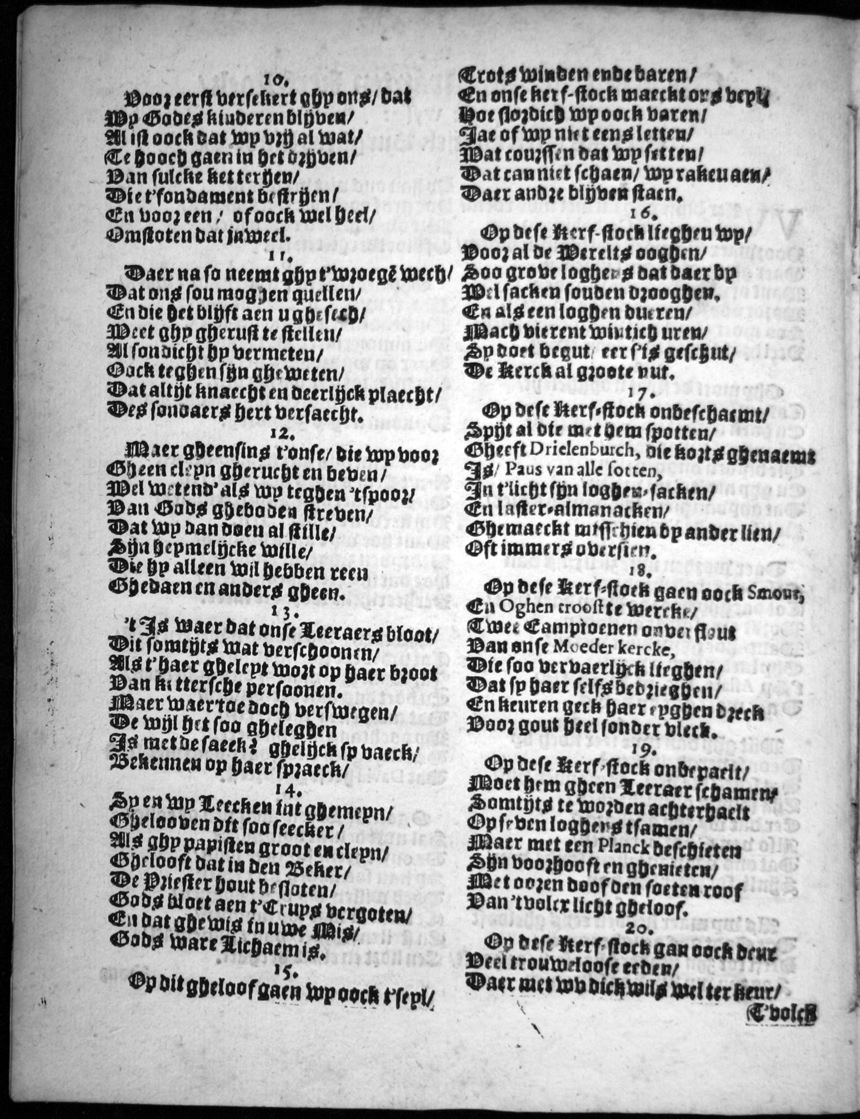 10.
Voor eerst versekert ghy ons/ dat
Wy Godes kinderen blijven/
Al ist oock dat wy vrij al wat/
Te hooch gaen in het drijven/
Van sulcke ketterijen/
Die t'fondament bestrijen/
En voor een/ of oock wel heel/
Omstoten dat juweel.
11.
Daer na so neemt ghy t'wroegē wech/
Dat ons sou moghen quellen/
En die het blijft aen u ghesech/
Weet ghy gherust te stellen/
Al sondicht hy vermeten/
Oock teghen sijn gheweten/
Dat altijt knaecht en deerlijck plaecht/
Des sondaers hert versaecht.
12.
Maer gheensins t'onse/ die wy voor
Gheen cleyn gherucht en beven/
Wel wetend' als wy teghen 'tspoor/
Van Gods gheboden streven/
Dat wy dan doen al stille/
Sijn heymelijcke wille/
Die hy alleen wil hebben reen
Ghedaen en anders gheen.
13.
't Is waer dat onse Leeraers bloot/
Dit somtijts wat verschoonen/
Als t'haer gheleyt wort op haer broot
Van kettersche persoonen.
Maer waer toe doch verswegen/
De wijl het soo gheleghen
Is met de saeck? ghelijck sp vaeck/
Bekennen op haer spraeck/
14.
Sy en wy Leecken int ghemeyn/
Ghelooven dit soo seecker/
Als ghy papisten groot en cleyn/
Ghelooft dat in den Beker/
De Priester hout besloten/
Gods bloet aen t'Cruys vergoten/
En dat ghewis in uwe Mis/
Gods ware Lichaem is.
15.
Op dit gheloof gaen wy oock t'seyl/
Trots winden ende baren/
En onse kerf-stock maeckt ons veyl/
Hoe slordich wy oock varen/
Jae of wy niet eens letten/
Wat courssen dat wy setten/
Dat can niet schaen/ wy raken aen/
Daer andre blijven staen.
16.
Op dese Kerf-stock lieghen wy/
Voor al de Werelts ooghen/
Soo grove loghens dat daer by
Wel sacken souden drooghen.
En als een loghen dueren/
Mach vierentwintich uren/
Sy doet begut/ eer s'is geschut/
De Kerck al groote nut.
17.
Op dese Kerf-stock onbeschaemt/
Spijt al die met hem spotten/
Gheeft Drielenburch, die korts ghenaemt
Is/ Paus van alle sotten,
In t'licht sijn loghen-sacken/
En laster-almanacken/
Ghemaeckt misschien by ander lien/
Oft immers oversien.
18.
Op dese Kerf-stock gaen oock Smout,
En Oghen troost te wercke/
Twee Campioenen onverflout
Van onse Moeder kercke,
Die soo vervaerlijck lieghen/
Dat sy haer selfs bedrieghen/
En keuren geck haer eyghen dreck
Voor gout heel sonder vleck.
19.
Op dese Kerf-stock onbepaelt/
Moet hem gheen Leeraer schamen/
Somtijts te worden achterhaelt
Op seven loghens t'samen/
Maer met een Planck beschieten
Sijn voorhooft en ghenieten/
Met ooren doof den soeten roof
Van 'tvolcx licht gheloof.
20.
Op dese Kerf-stock gan oock deur
Veel trouweloose eeden/
Daer met wy dickwils wel ter keur/
T'volck